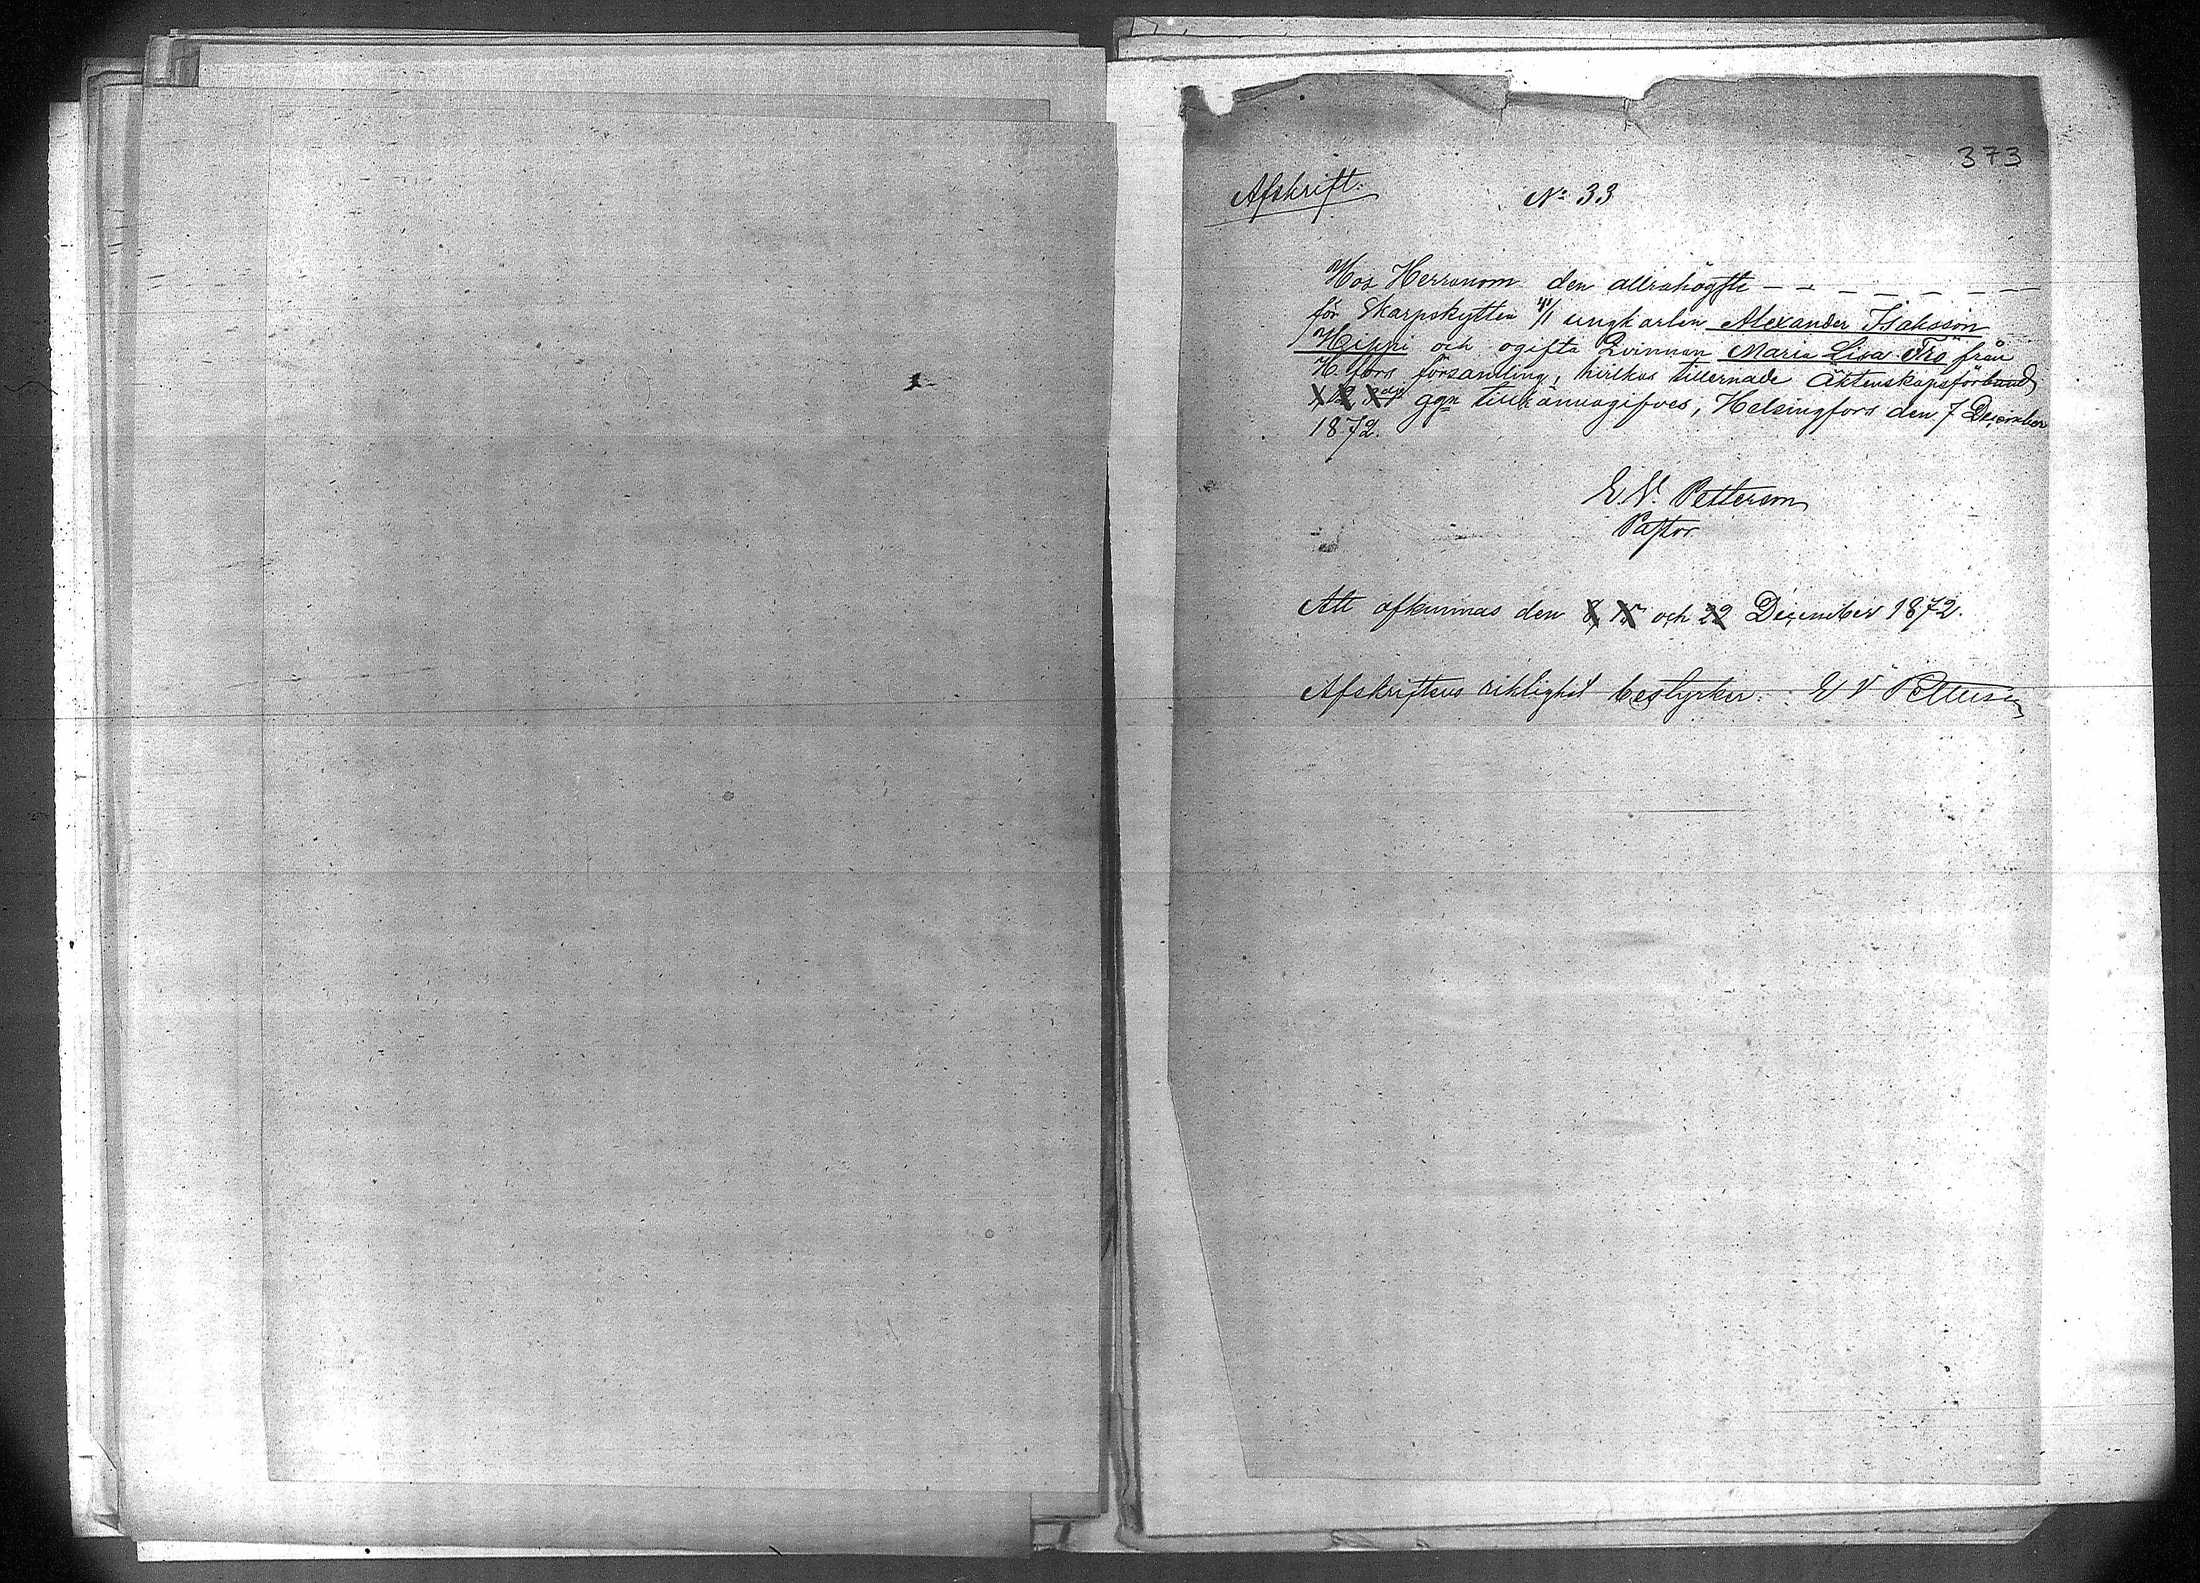 373
Afskrift.
No 33
Hos Herranom den allrahögste – – – – – – –
för Skarpskytten 41/1 ungkarlen Alexander Isaksson
Hippi och ogifta Qvinnan Maria Lisa Frö från
H.fors församling, hvilkas tillernade Äktenskapsförbund
ggn tillkännagifves, Helsingfors den 7 December
1872.
E.V. Petterson
Pastor
Att afkunnas den 8 15 och 22 December 1872.
Afskriftens riktighet bestyrker: E V Petterson